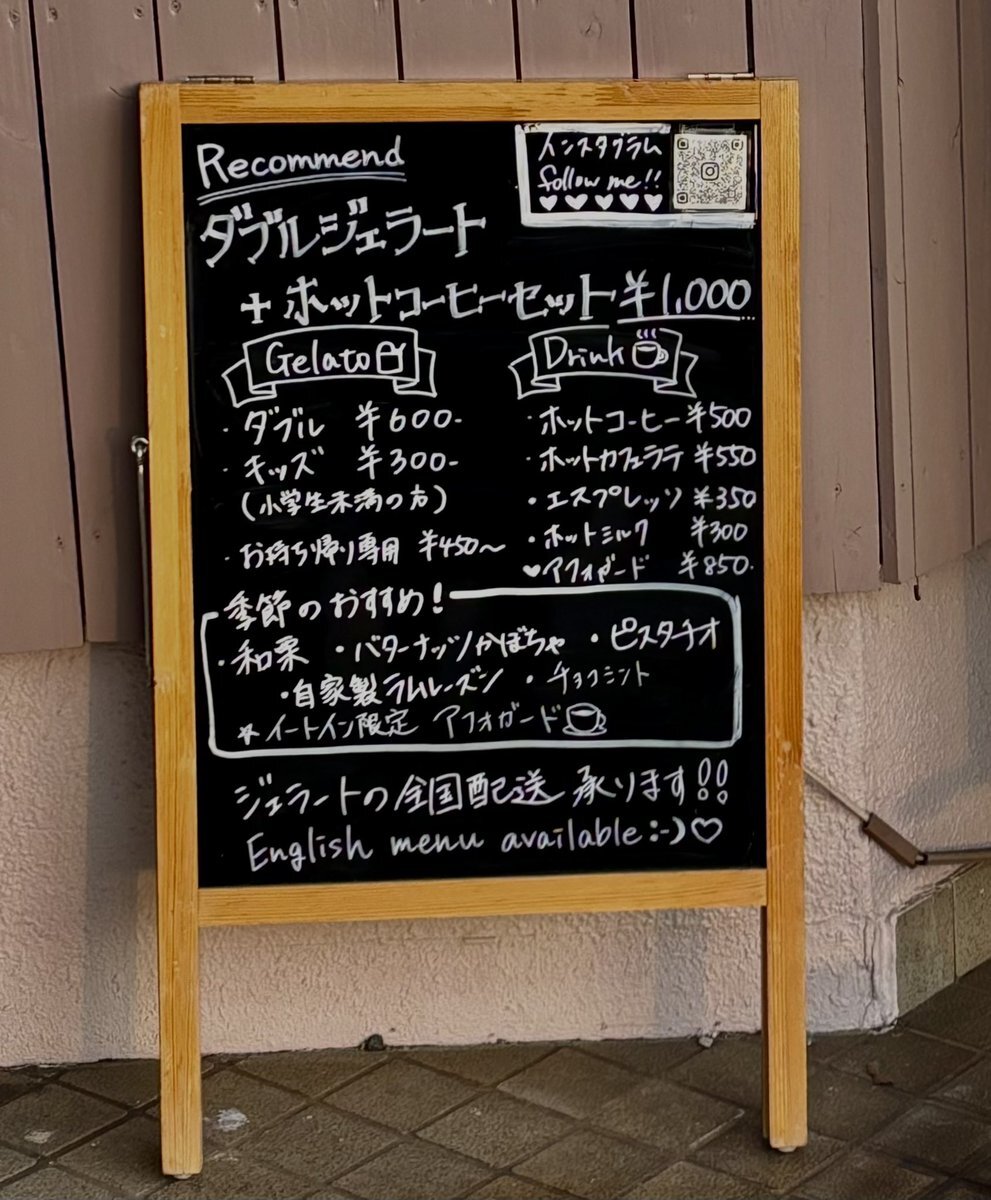 Recommend
インスタグラム
follow me!!
ダブルジェラート
+ ホットコーヒーセット ¥1,000
Gelato
・ダブル ¥600-
・キッズ ¥300-
(小学生未満の方)
・お持ち帰り専用 ¥450〜
Drink
・ホットコーヒー ¥500
・ホットカフェラテ ¥550
・エスプレッソ ¥350
・ホットミルク ¥300
♥アフォガード ¥850.
季節のおすすめ!
・和栗 ・バターナッツかぼちゃ ・ピスタチオ
・自家製ラムレーズン ・チョコミント
*イートイン限定 アフォガード
ジェラートの全国配送 承ります!!
English menu available :-)♡